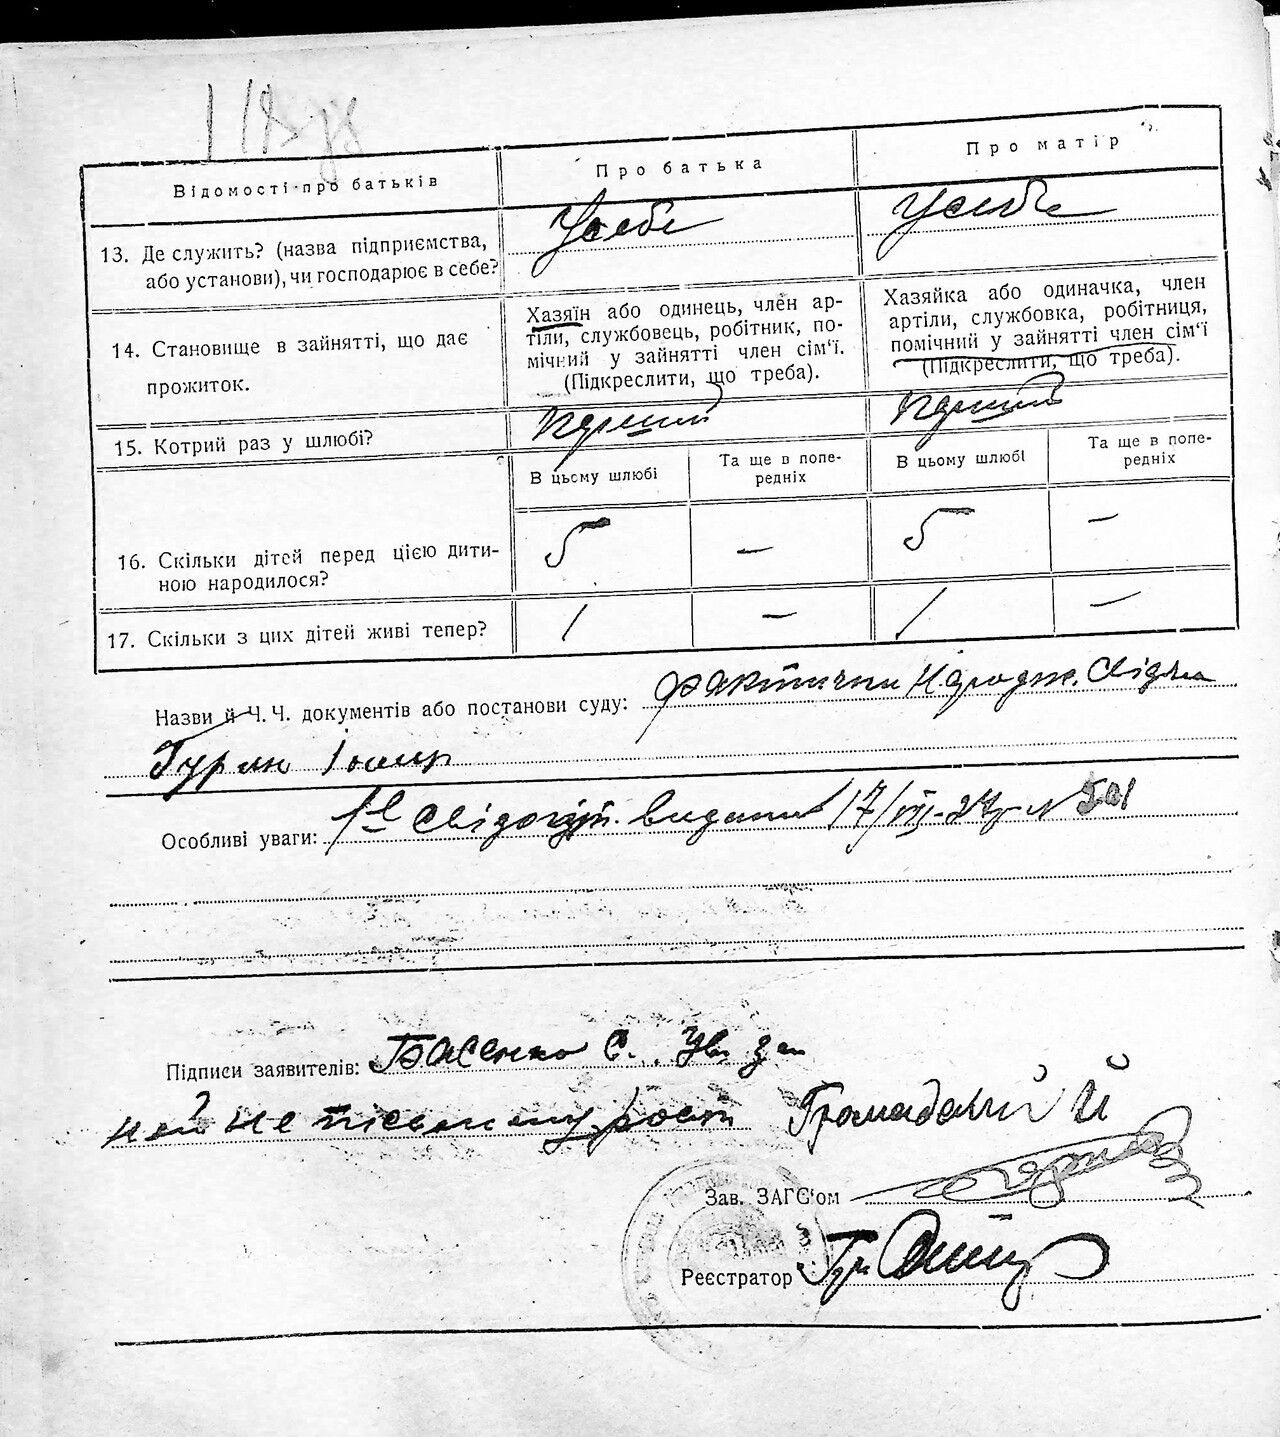 Відомості про батьків
Про батька
Про матір
13. Де служить? (назва підприємства, або установи), чи господарює в себе?
У себе
У себе
14. Становище в зайнятті, що дає прожиток.
Хазяїн або одинець, член ар-
тіли, службовець, робітник, по-
мічний у зайнятті член сім'ї.
(Підкреслити, що треба).
Хазяйка або одиначка, член
артіли, службовка, робітниця,
помічний у зайнятті член сім'ї
(Підкреслити, що треба).
15. Котрий раз у шлюбі?
перший
перший
В цьому шлюбі
Та ще в попе-
редніх
В цьому шлюбі
Та ще в попе-
редніх
16. Скільки дітей перед цією дити-
ною народилося?
5 — 5 —
17. Скільки з цих дітей живі тепер?
1 — 1 —
Назви й Ч. Ч. документів або постанови суду:
Особливі уваги: видано 17/VII-27р N 501
Підписи заявителів: Басенко С.
Громадський
Зав. ЗАГС'ом
Реєстратор